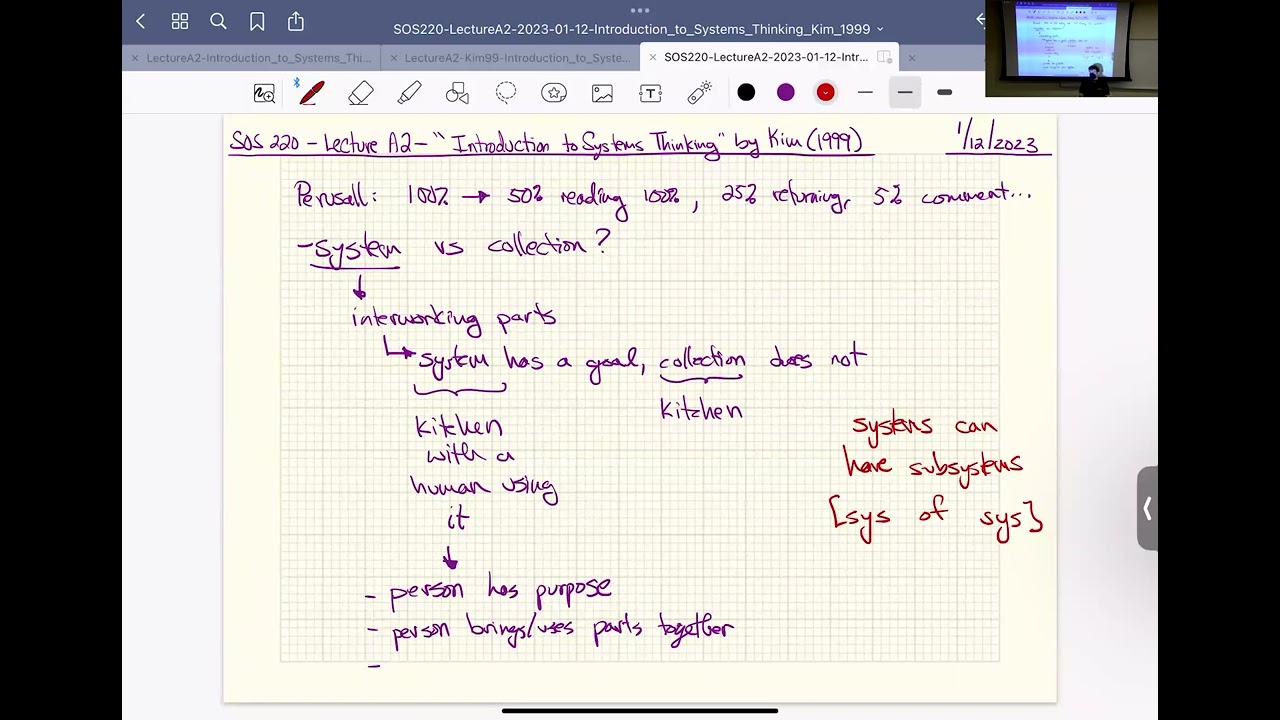 -01-12-Introduction_to_Systems_Thinking_Kim_1999
LectureA2-Introduction_to_Systems_Thi
SOS220-LectureA2-2023-01-12-Intr...
SOS 220 - Lecture A2 - "Introduction to Systems Thinking" by Kim (1999) 1/12/2023
Perusall: 100% → 50% reading 100%, 25% returning, 5% comment...
- system vs collection?
↓
interworking parts
↳ system has a goal, collection does not
kitchen
kitchen
with a
human using
it
↓
- person has purpose
- person brings/uses parts together
-
systems can
have subsystems
[sys of sys]